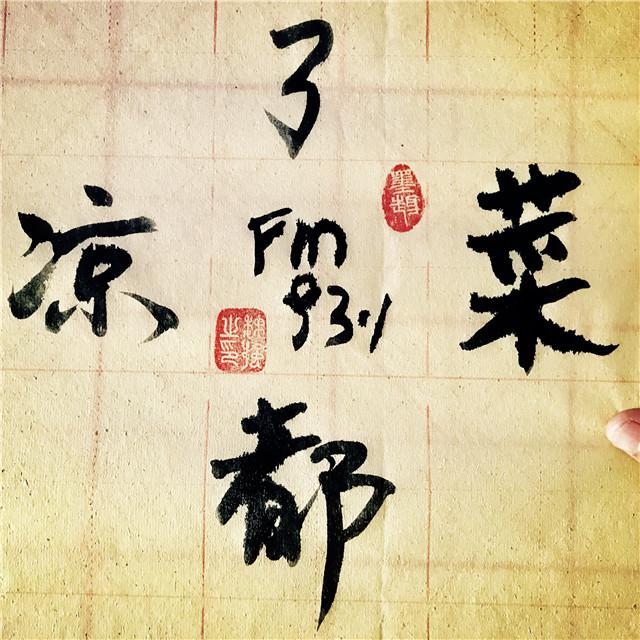 菜
都
凉
了
Fm
93.1